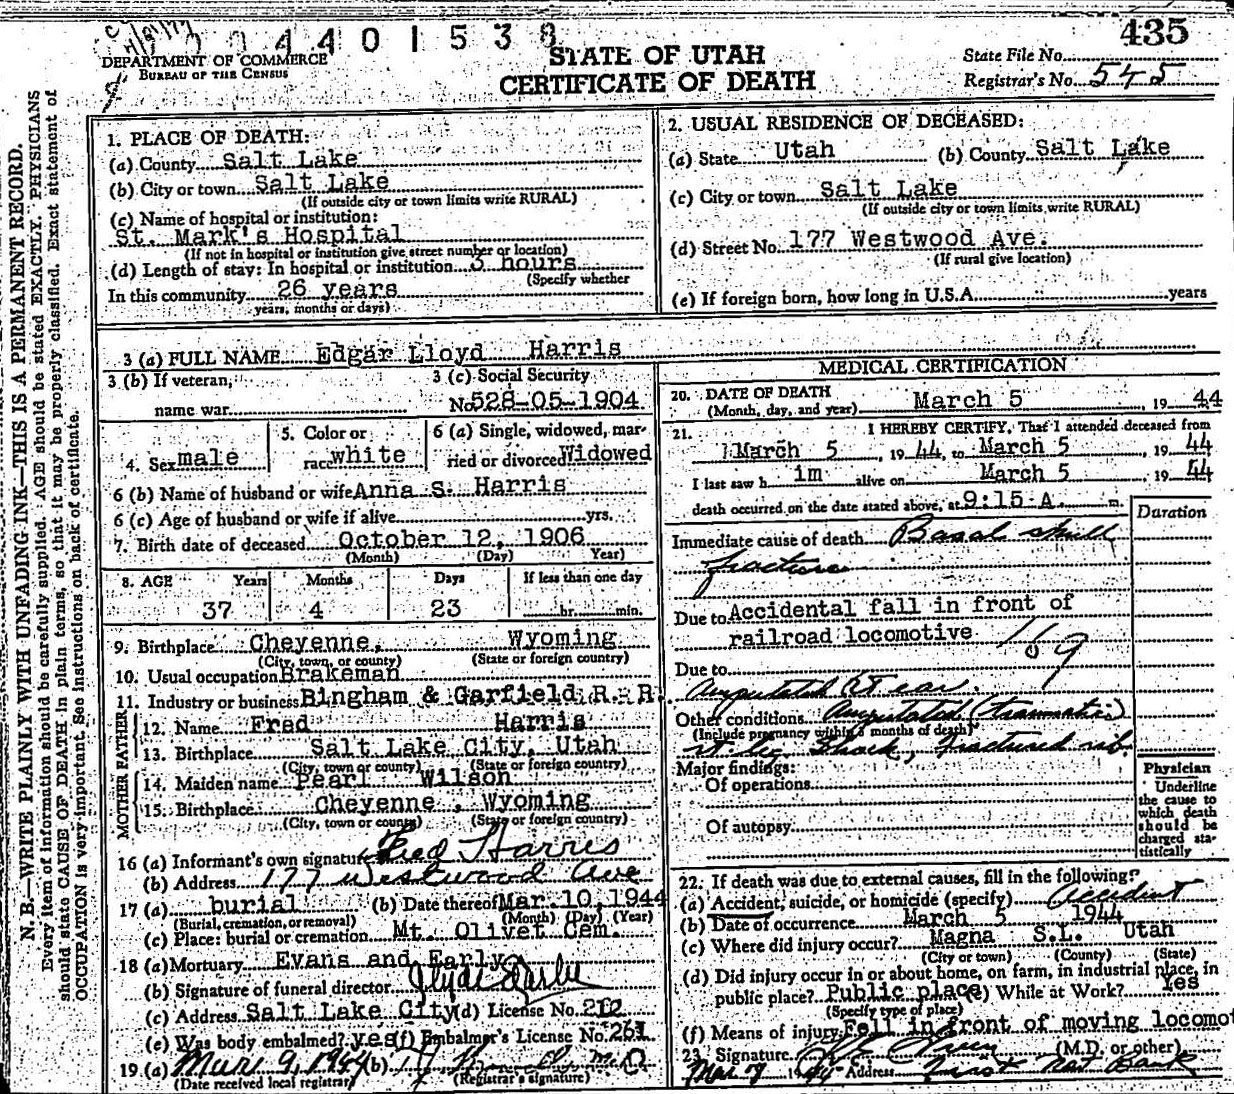 4 4 0 1 5 3 8
435
DEPARTMENT OF COMMERCE
BUREAU OF THE CENSUS
STATE OF UTAH
CERTIFICATE OF DEATH
State File No.
Registrar's No. 545
N. B.—WRITE PLAINLY WITH UNFADING INK—THIS IS A PERMANENT RECORD.
Every item of information should be carefully supplied. AGE should be stated EXACTLY. PHYSICIANS
should state CAUSE OF DEATH in plain terms, so that it may be properly classified. Exact statement of
OCCUPATION is very important. See instructions on back of certificate.
1. PLACE OF DEATH:
(a) County Salt Lake
(b) City or town Salt Lake
(If outside city or town limits write RURAL)
(c) Name of hospital or institution:
St. Mark's Hospital
(If not in hospital or institution give street number or location)
(d) Length of stay: In hospital or institution 3 hours
(Specify whether
In this community 26 years
years, months or days)
2. USUAL RESIDENCE OF DECEASED:
(a) State Utah (b) County Salt Lake
(c) City or town Salt Lake
(If outside city or town limits write RURAL)
(d) Street No. 177 Westwood Ave.
(If rural give location)
(e) If foreign born, how long in U.S.A. years
3 (a) FULL NAME Edgar Lloyd Harris
3 (b) If veteran,
name war
3 (c) Social Security
No. 528-05-1904
4. Sex male
5. Color or
race white
6 (a) Single, widowed, mar-
ried or divorced Widowed
6 (b) Name of husband or wife Anna S. Harris
6 (c) Age of husband or wife if alive yrs.
7. Birth date of deceased October 12, 1906
(Month) (Day) Year)
8. AGE Years Months Days If less than one day
37 4 23 hr. min.
9. Birthplace Cheyenne, Wyoming
(City, town, or county) (State or foreign country)
10. Usual occupation Brakeman
11. Industry or business Bingham & Garfield R. R.
FATHER
12. Name Fred Harris
13. Birthplace Salt Lake City, Utah
(City, town or county) (State or foreign country)
MOTHER
14. Maiden name Pearl Wilson
15. Birthplace Cheyenne, Wyoming
(City, town or county) (State or foreign country)
16 (a) Informant's own signature Fred Harris
(b) Address 177 Westwood Ave
17 (a) burial (b) Date thereof Mar. 10, 1944
(Burial, cremation, or removal) (Month) (Day) (Year)
(c) Place: burial or cremation Mt. Olivet Cem.
18 (a) Mortuary Evans and Early
(b) Signature of funeral director
(c) Address Salt Lake City (d) License No. 212
(e) Was body embalmed? yes (f) Embalmer's License No. 261
19. (a) Mar 9, 1944 (b) M.D
(Date received local registrar) (Registrar's signature)
MEDICAL CERTIFICATION
20. DATE OF DEATH
(Month, day, and year) March 5, 1944
21. I HEREBY CERTIFY, That I attended deceased from
March 5, 1944, to March 5, 1944
I last saw him alive on March 5, 1944
death occurred on the date stated above, at 9:15 A. m.
Duration
Immediate cause of death Basal skull
fracture
Due to Accidental fall in front of
railroad locomotive
169
Due to
Amputated rt ear.
Other conditions Amputated (traumatic)
(Include pregnancy within 3 months of death)
rt. leg Shock, fractured rib.
Major findings:
Of operations
Of autopsy
Physician
Underline
the cause to
which death
should be
charged sta-
tistically
22. If death was due to external causes, fill in the following:
(a) Accident, suicide, or homicide (specify) Accident
(b) Date of occurrence March 5 1944
(c) Where did injury occur? Magna S.L. Utah
(City or town) (County) (State)
(d) Did injury occur in or about home, on farm, in industrial place, in
public place? Public place (e) While at Work? Yes
(Specify type of place)
(f) Means of injury Fell in front of moving locomot
23. Signature (M.D. or other)
Mar 7 1944 Address First Nat Bank